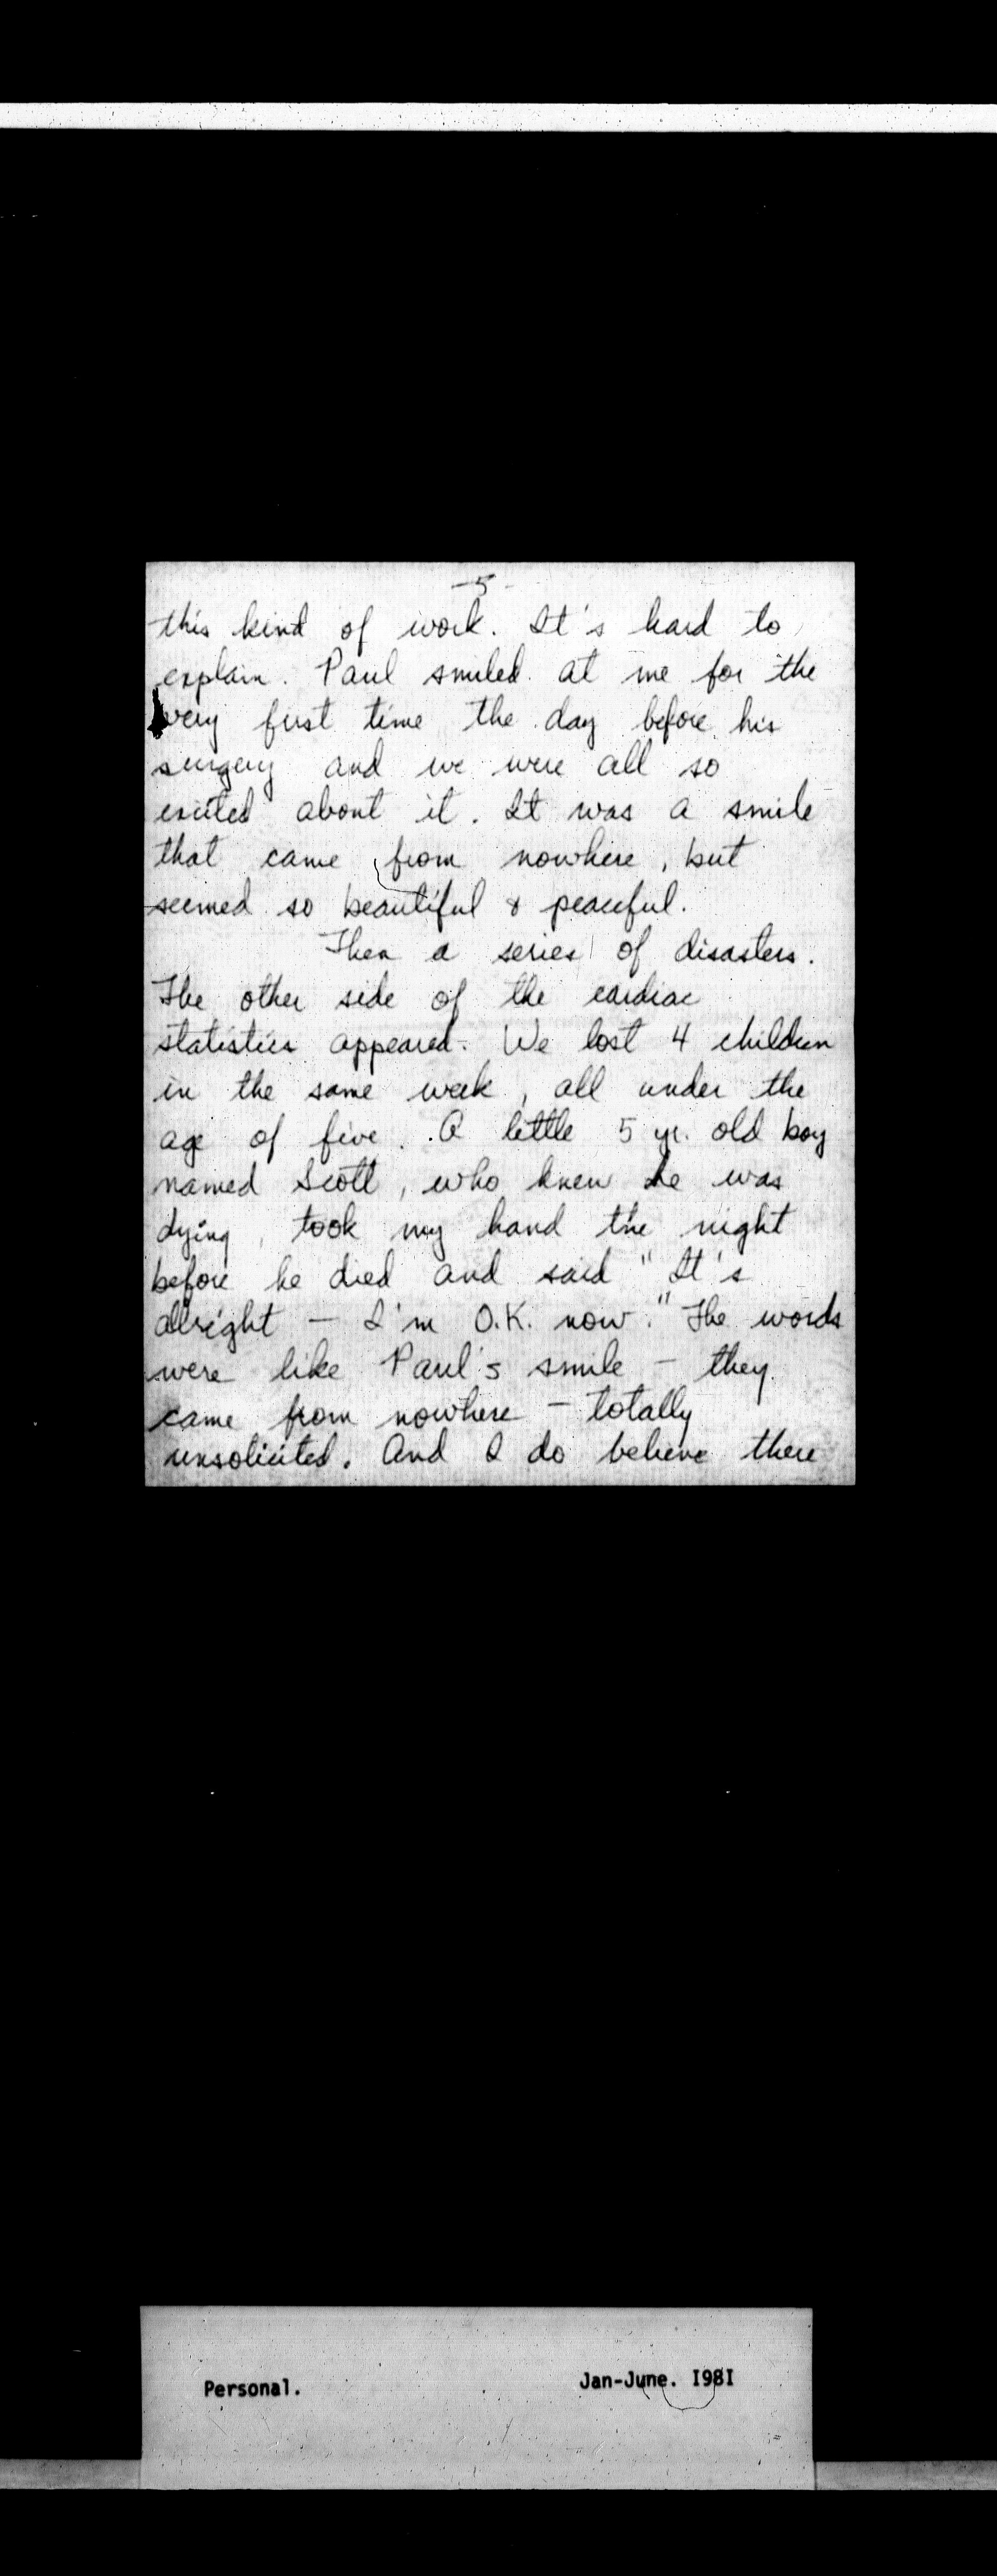 -5-
this kind of work. It's hard to
explain. Paul smiled at me for the
very first time the day before his
surgery and we were all so
excited about it. It was a smile
that came from nowhere, but
seemed so beautiful & peaceful.
Then a series of disasters.
The other side of the cardiac
statistics appeared. We lost 4 children
in the same week, all under the
age of five. A little 5 yr. old boy
named Scott, who knew he was
dying, took my hand the night
before he died and said "It's
allright - I'm O.K. now." The words
were like Paul's smile - they
came from nowhere - totally
unsolicited. And I do believe there
Personal. Jan-June. I98I